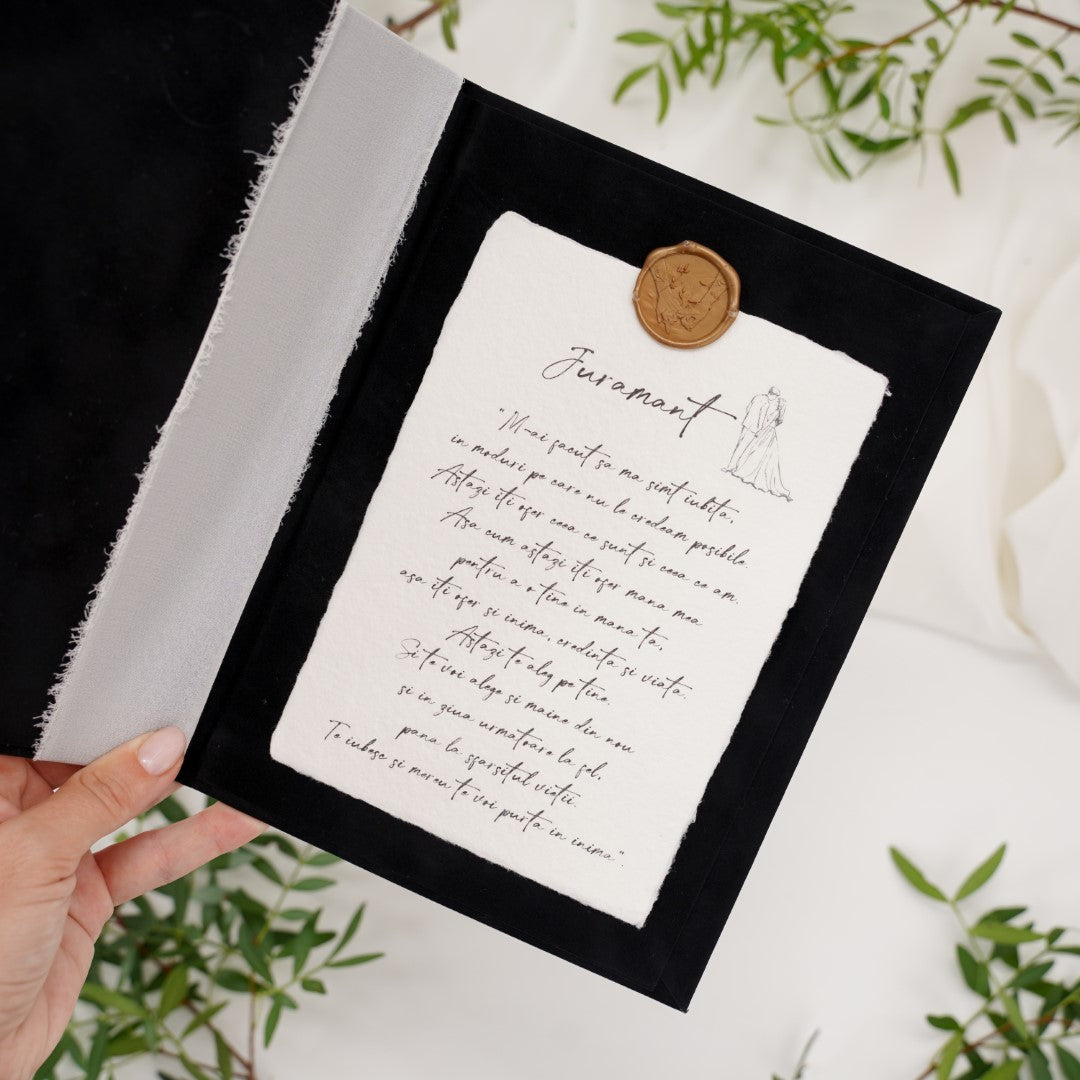 Juramant
"M-ai facut sa ma simt iubita,
in moduri pe care nu le credeam posibile.
Astazi iti ofer ceea ce sunt si ceea ce am.
Asa cum astazi iti ofer mana mea
pentru a o tine in mana ta,
asa iti ofer si inima, credinta si viata.
Astazi te aleg pe tine.
Si te voi alege si maine din nou
si in ziua urmatoare la fel,
pana la sfarsitul vietii.
Te iubesc si mereu te voi purta in inima".